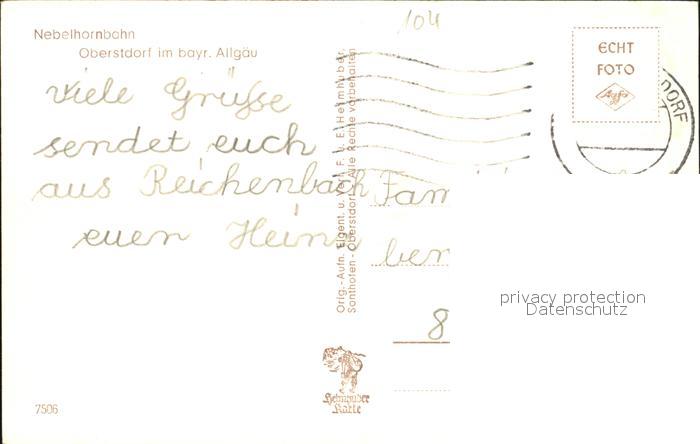 104
Nebelhornbahn
Oberstdorf im bayr. Allgäu
ECHT
FOTO
Agfa
DORF
Viele Grüße
sendet euch
aus Reichenbach
euer Heinz
Orig.-Aufn. Eigent. u. Verl. F. u. E. Heimhuber,
Sonthofen - Oberstdorf. Alle Rechte vorbehalten
Fam
ber
8
privacy protection
Datenschutz
Heimhuber
Karte
7506